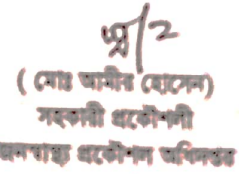 ( মোঃ আমীর হোসেন)
সহকারী প্রকৌশলী
জনস্বাস্থ্য প্রকৌশল অধিদপ্তর